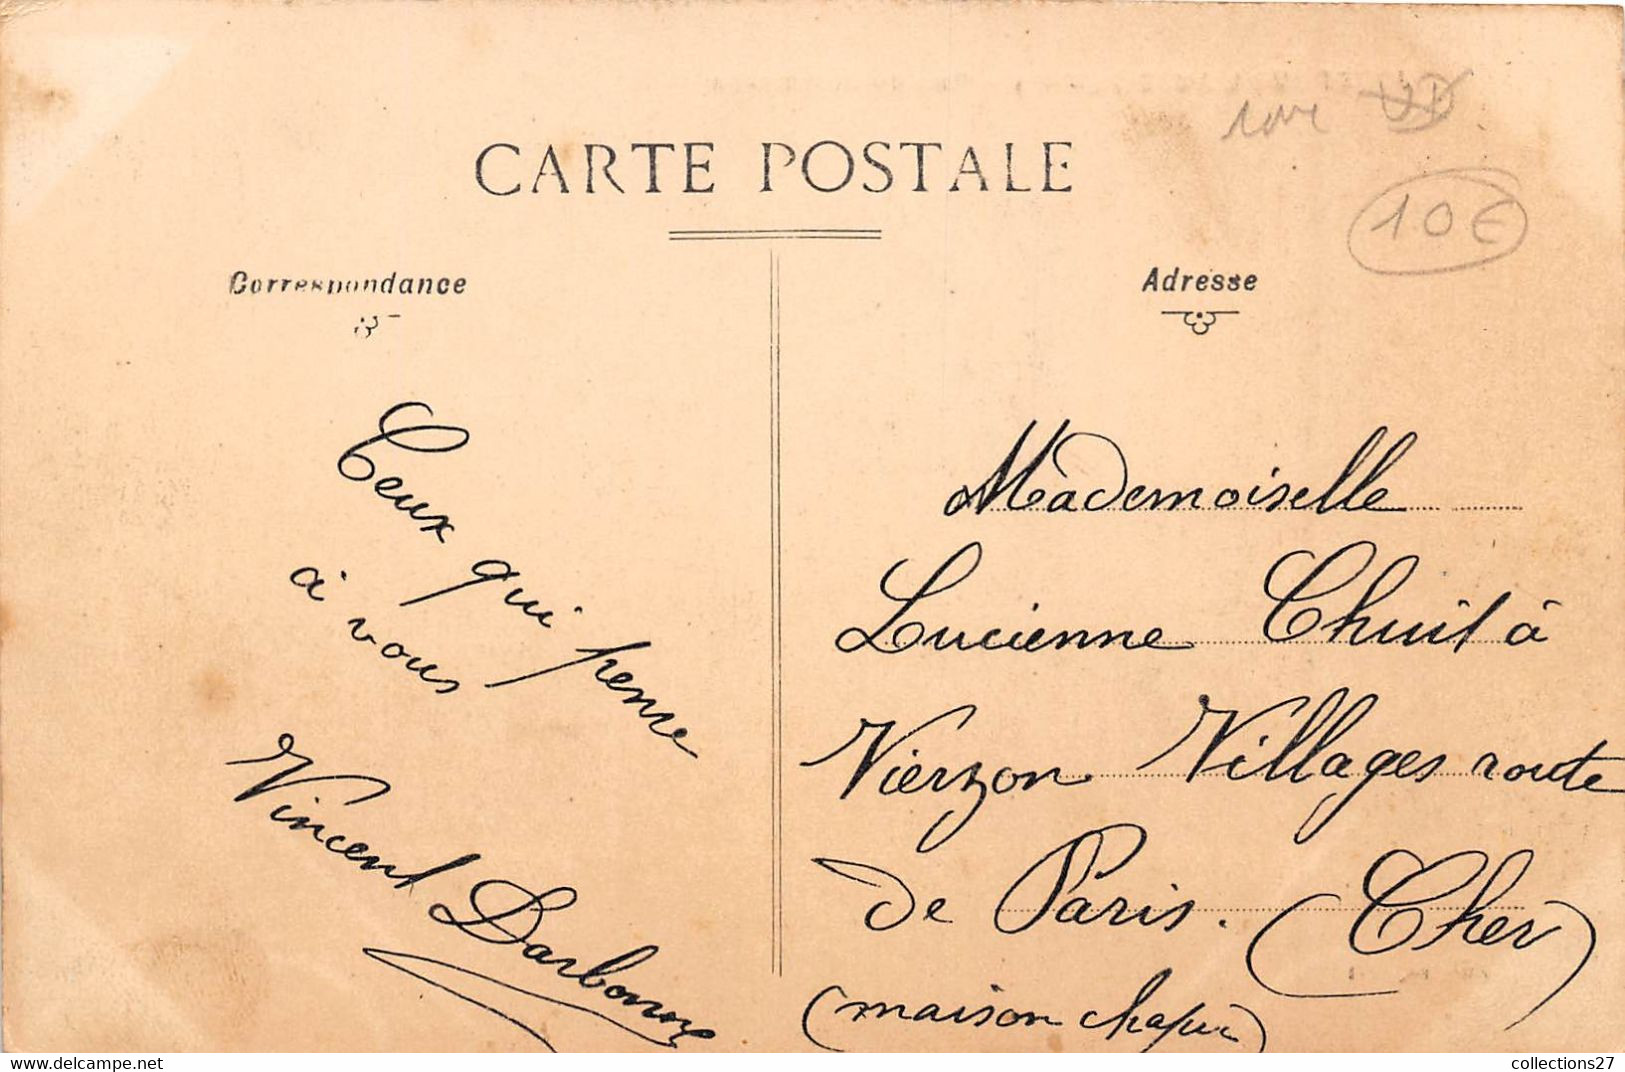 CARTE POSTALE
10€
Correspondance
Ceux qui pense
à vous
Vincent Darbonne
Adresse
Mademoiselle
Lucienne Chuit à
Vierzon Villages route
de Paris. (Cher)
(maison
collections27